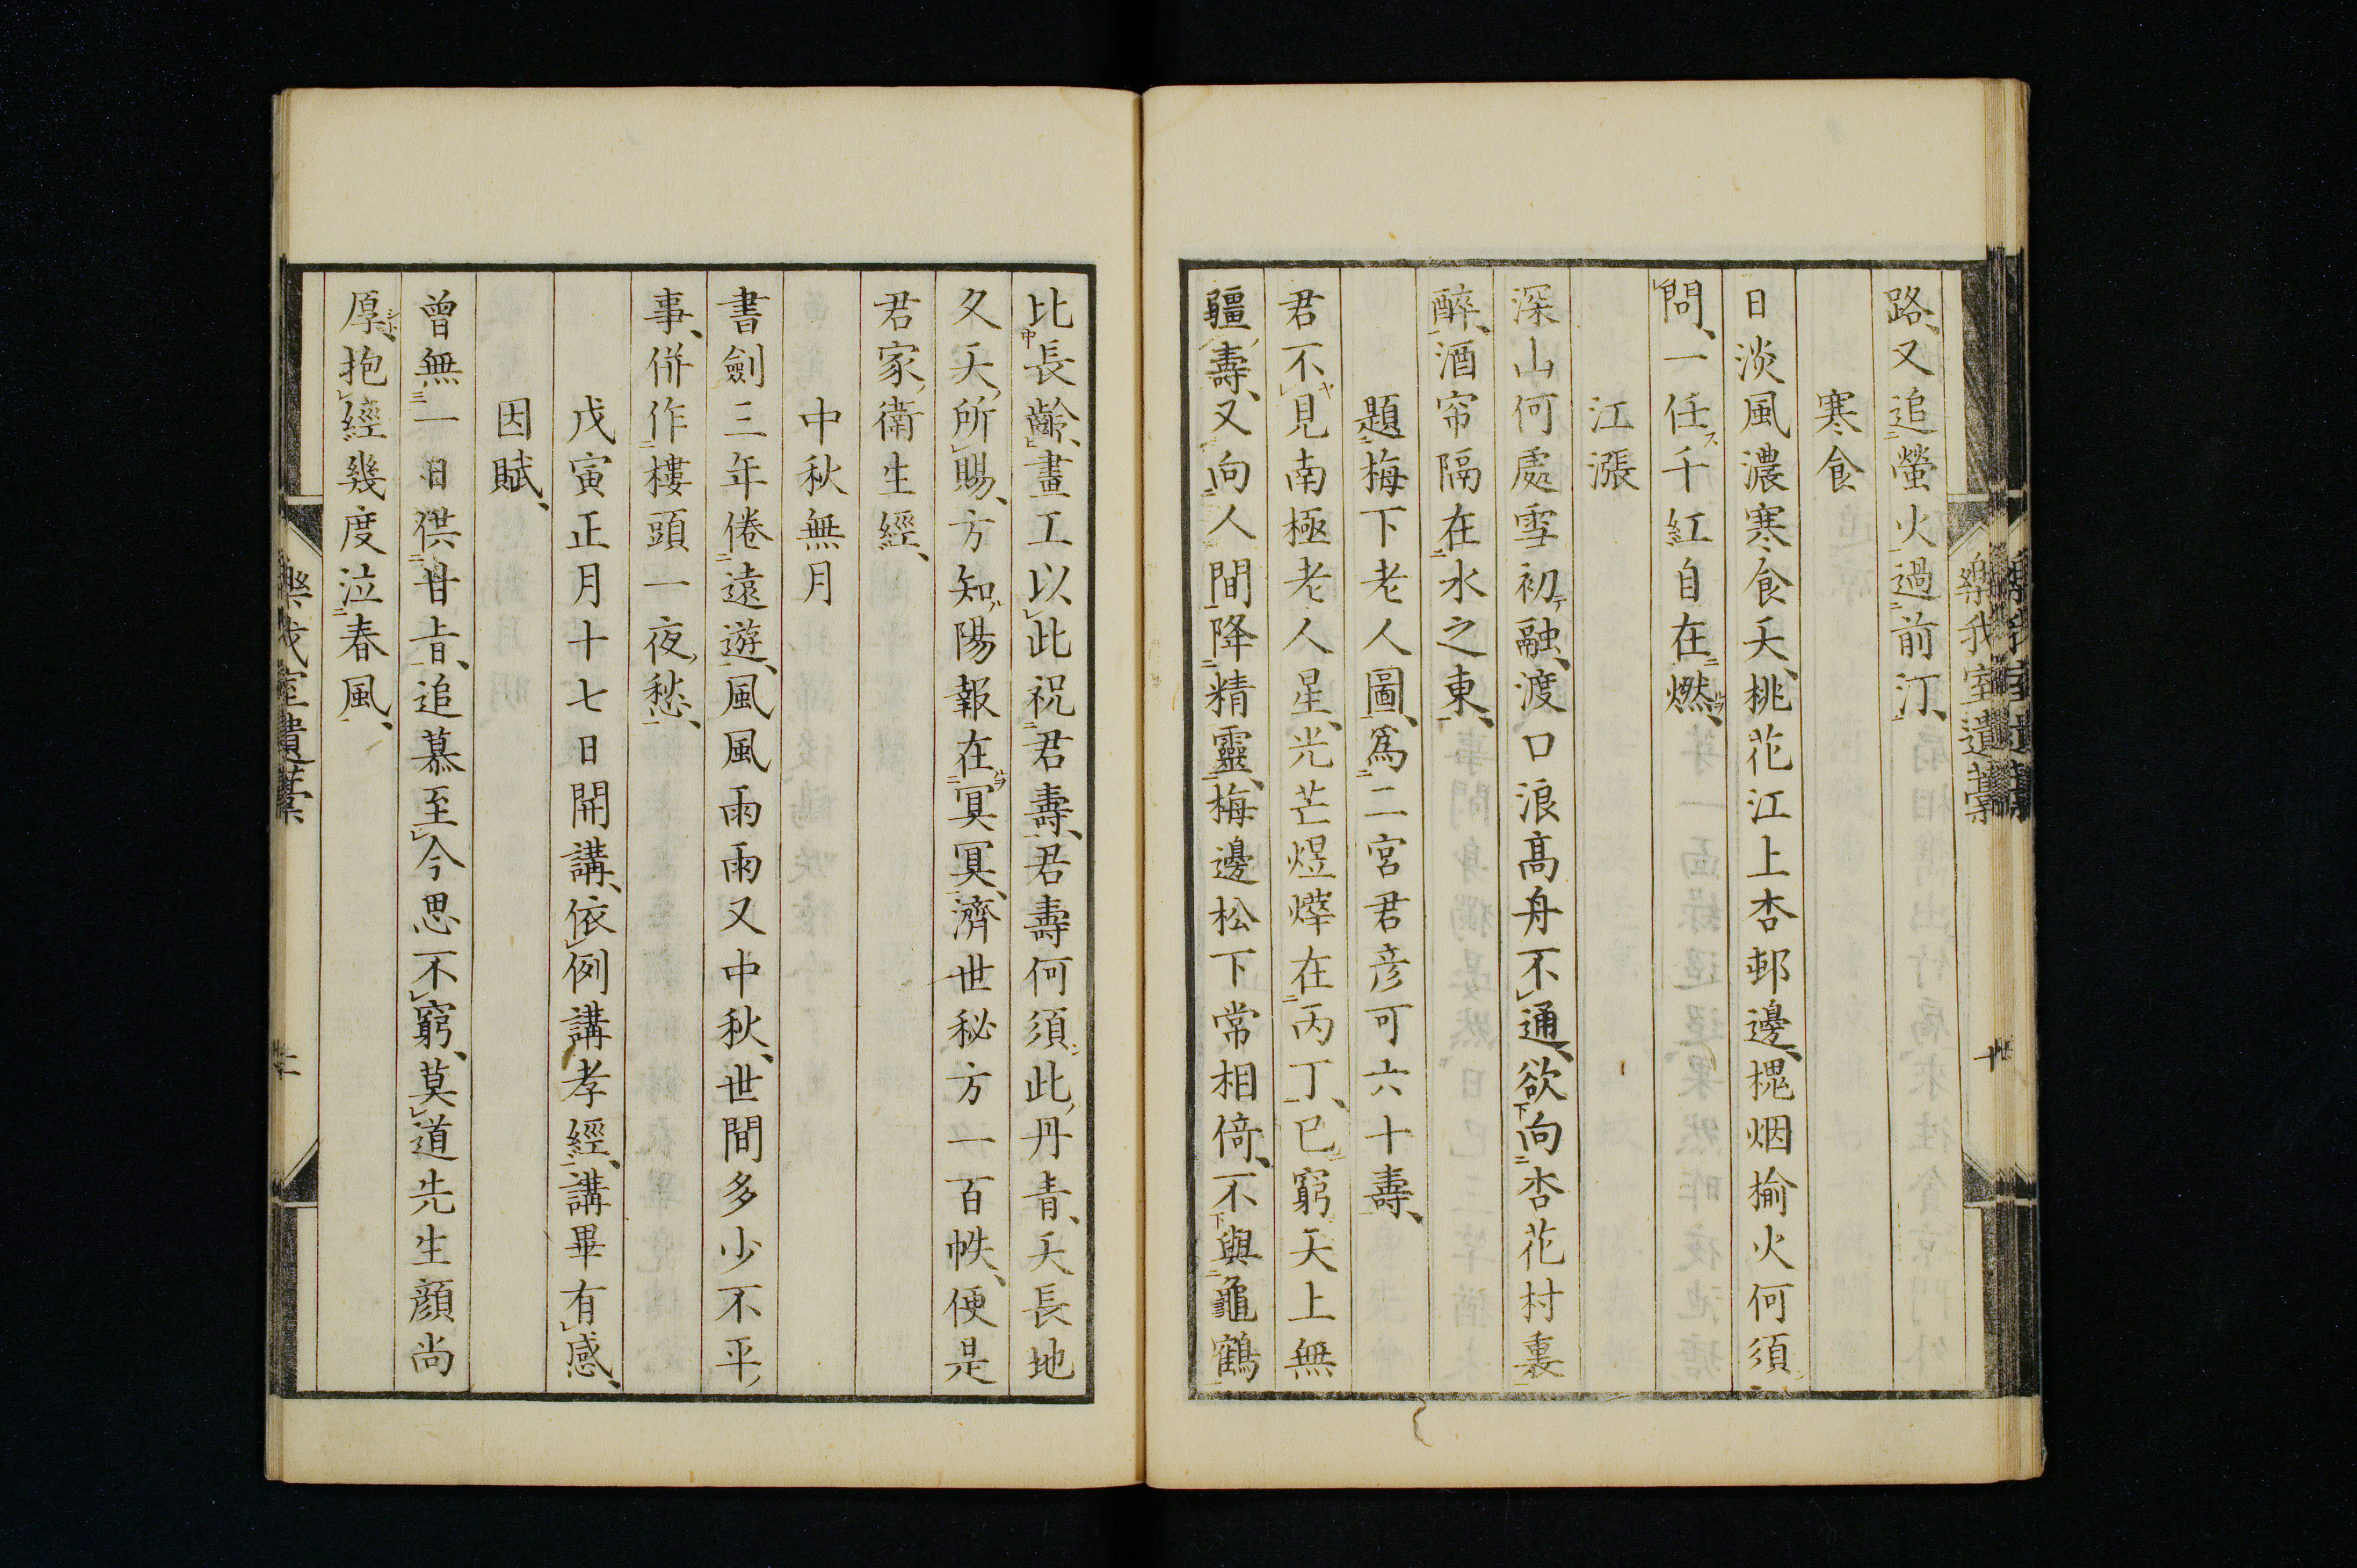 路、又追螢火過前汀、
寒食
日淡風濃寒食天、桃花江上杏邨邊、槐烟揄火何須
問、一任千紅自在燃、
江漲
深山何處雪初融、渡口浪高舟不通、欲向杏花村裏
醉、酒帘隔在水之東、
題梅下老人圖、爲二宮君彦可六十壽、
君不見南極老人星、光芒煜燁在丙丁、已窮天上無
疆壽、又向人間降精靈、梅邊松下常相倚、不與龜鶴
比長齡、畫工以此祝君壽、君壽何須此丹青、天長地
久天所賜、方知陽報在冥冥、濟世秘方一百帙、便是
君家衛生經、
中秋無月
書劍三年倦遠遊、風風雨雨又中秋、世間多少不平
事、併作樓頭一夜愁、
戊寅正月十七日開講、依例講孝經、講畢有感、
因賦、
曾無一日供甘旨、追慕至今思不窮、莫道先生顔尚
厚、抱經幾度泣春風、
樂我室遺藁